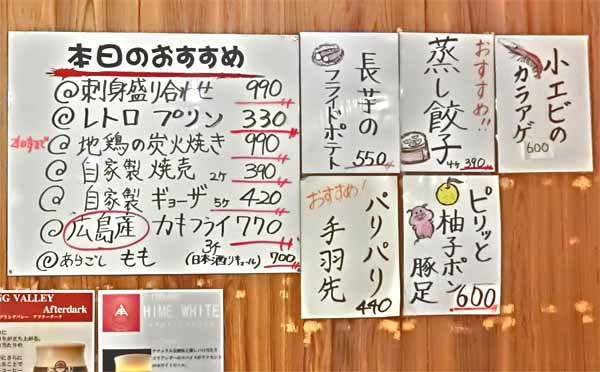 本日のおすすめ
@刺身盛り合わせ 990
@レトロプリン 330
@地鶏の炭火焼き 990
@自家製焼売 2ケ 390
@自家製ギョーザ 5ケ 420
@広島産カキフライ 3ケ 770
@あらごし もも (日本酒リキュール) 700
長芋の
フライドポテト
550
おすすめ!!
蒸し餃子
4ケ 390
小エビの
カラアゲ
600
おすすめ!
パリパリ
手羽先
440
ピリッと
柚子ポン
豚足
600
NG VALLEY
Afterdark
HIME WHITE